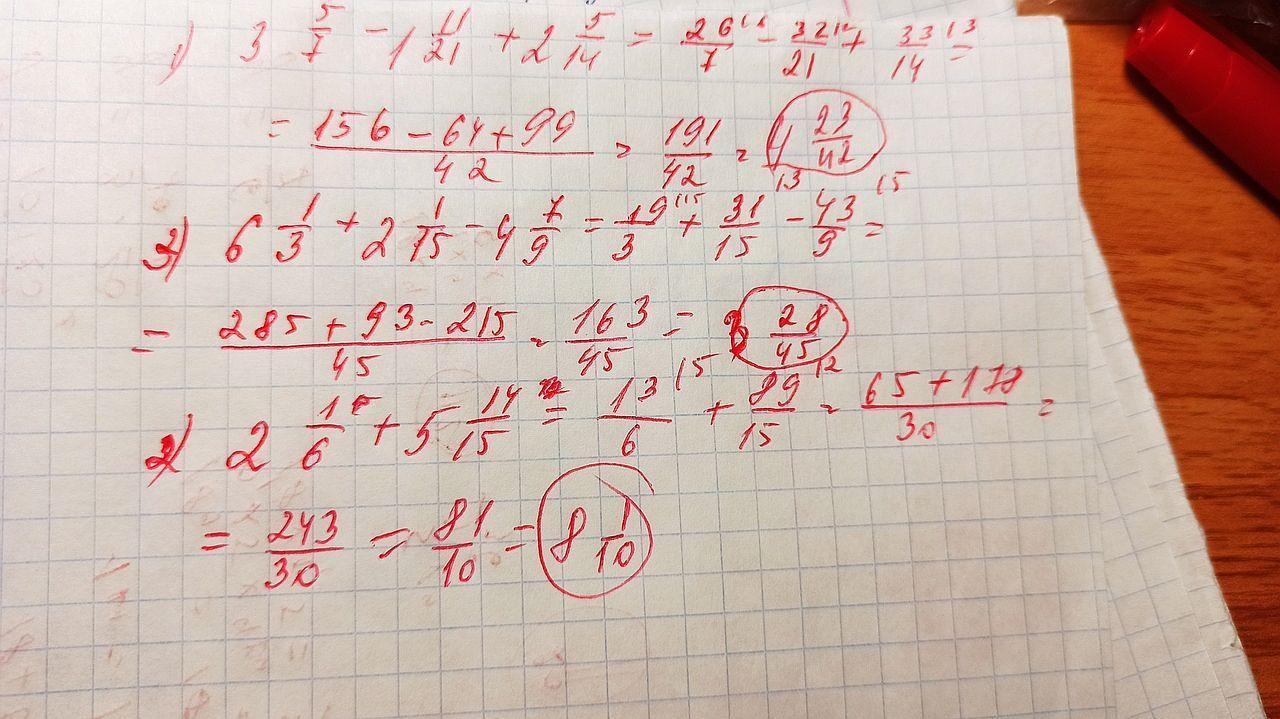 1) 3 5/7 - 1 11/21 + 2 5/14 = 26/7 - 32/21 + 33/14 =
= 156 - 64 + 99/42 = 191/42 = 4 23/42
3) 6 1/3 + 2 1/15 - 4 7/9 = 19/3 + 31/15 - 43/9 =
= 285 + 93 - 215/45 = 163/45 = 3 28/45
2) 2 1/6 + 5 14/15 = 13/6 + 89/15 = 65 + 178/30 =
= 243/30 = 81/10 = 8 1/10